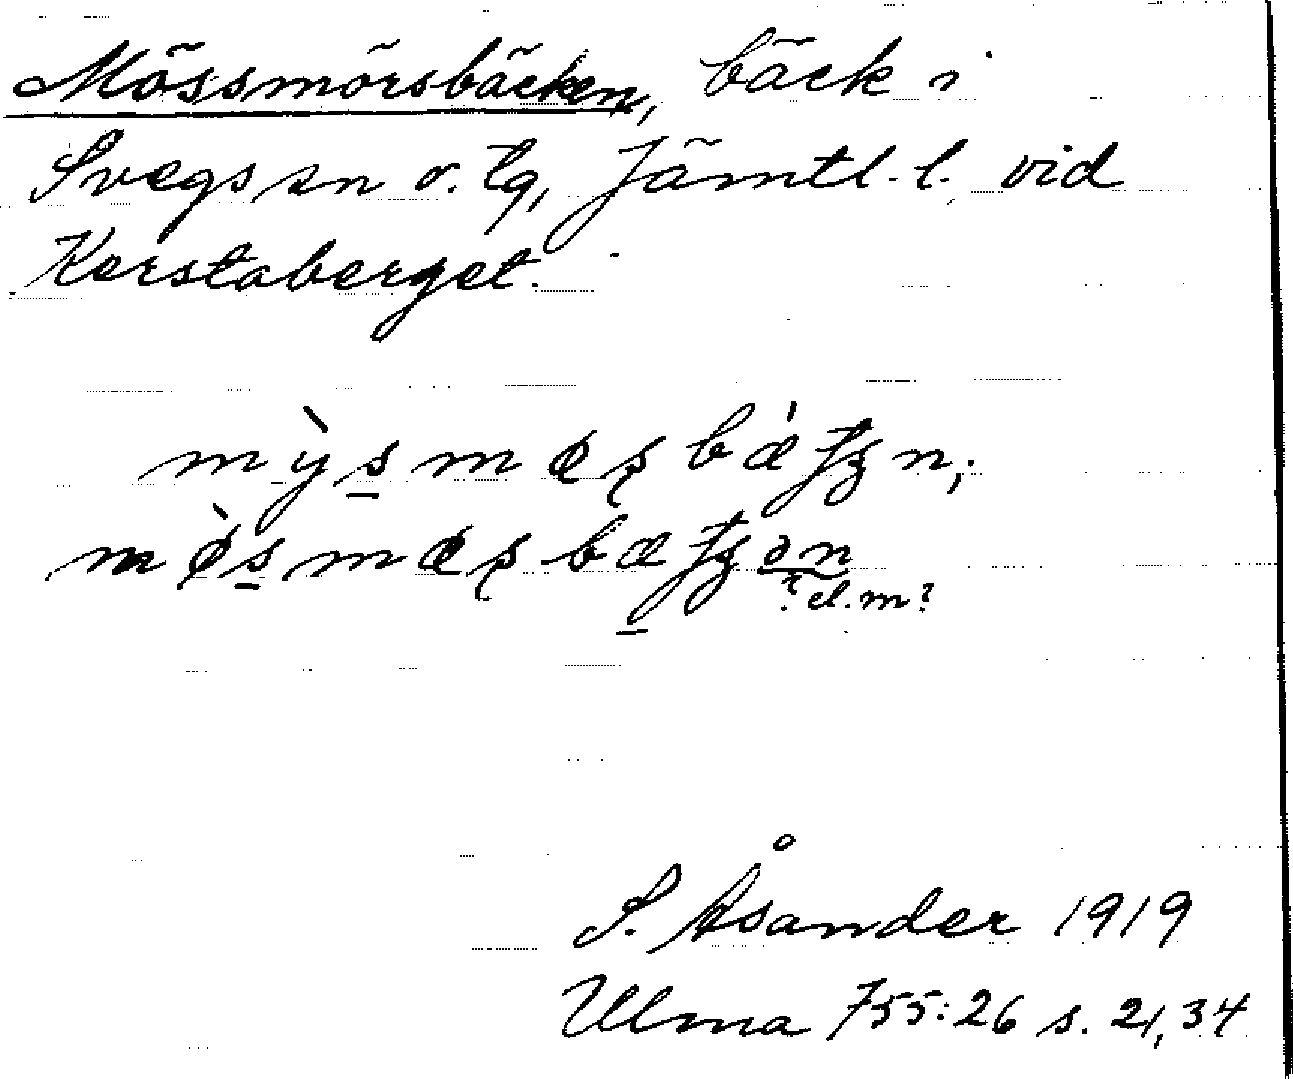 Mössmörsbäcken, bäck i
Svegs sn o. tg, Jämtl. l. vid
Kerstaberget.
mỳsmœʂbæ̀ʈʂn,;
mø̀smœʂbæʈʂən
? el. m?
S. Åsander 1919
Ulma 755:26 s. 21, 34